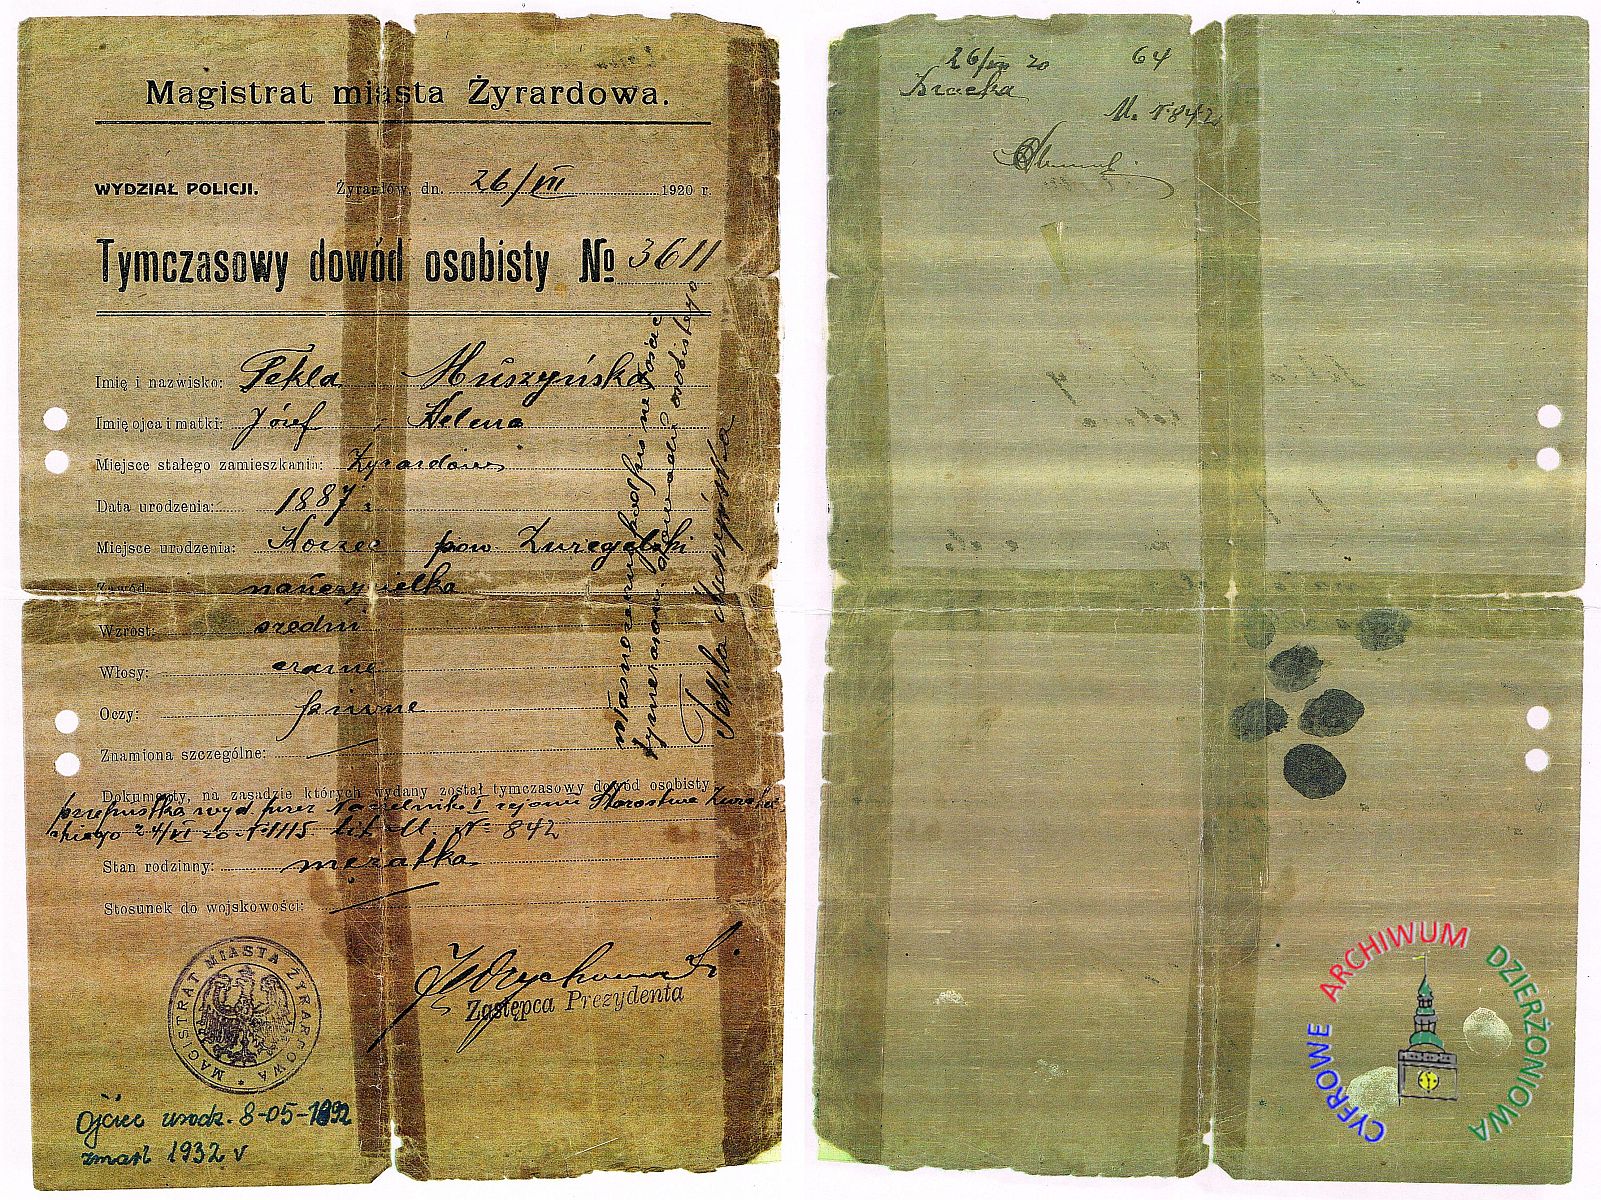 Magistrat miasta Żyrardowa.
WYDZIAŁ POLICJI. Żyrardów, dn. 26/VII 1920 r.
Tymczasowy dowód osobisty № 3611
Imię i nazwisko: Tekla Muszyńska
Imię ojca i matki: Józef i Helena
Miejsce stałego zamieszkania: Żyrardów
Data urodzenia: 1887 r
Miejsce urodzenia: Korzec pow
Zawód nauczycielka
Wzrost: średni
Włosy: czarne
Oczy: piwne
Znamiona szczególne:
Dokumenty, na zasadzie których wydany został tymczasowy dowód osobisty
przepustka wyd przez I rejonu Starostwa
24/VI 20 № 1115 lit. M. № 842
Stan rodzinny: mężatka
Stosunek do wojskowości:
własnoręczny podpis
tymczasow. dowodu osobistego
Tekla Muszyńska
Zastępca Prezydenta
MAGISTRAT MIASTA ŻYRARDOWA
Ojciec urodz. 8-05-1892
zmarł 1932 r
26/VII 20 64
M. № 842
CYFROWE ARCHIWUM DZIERŻONIOWA